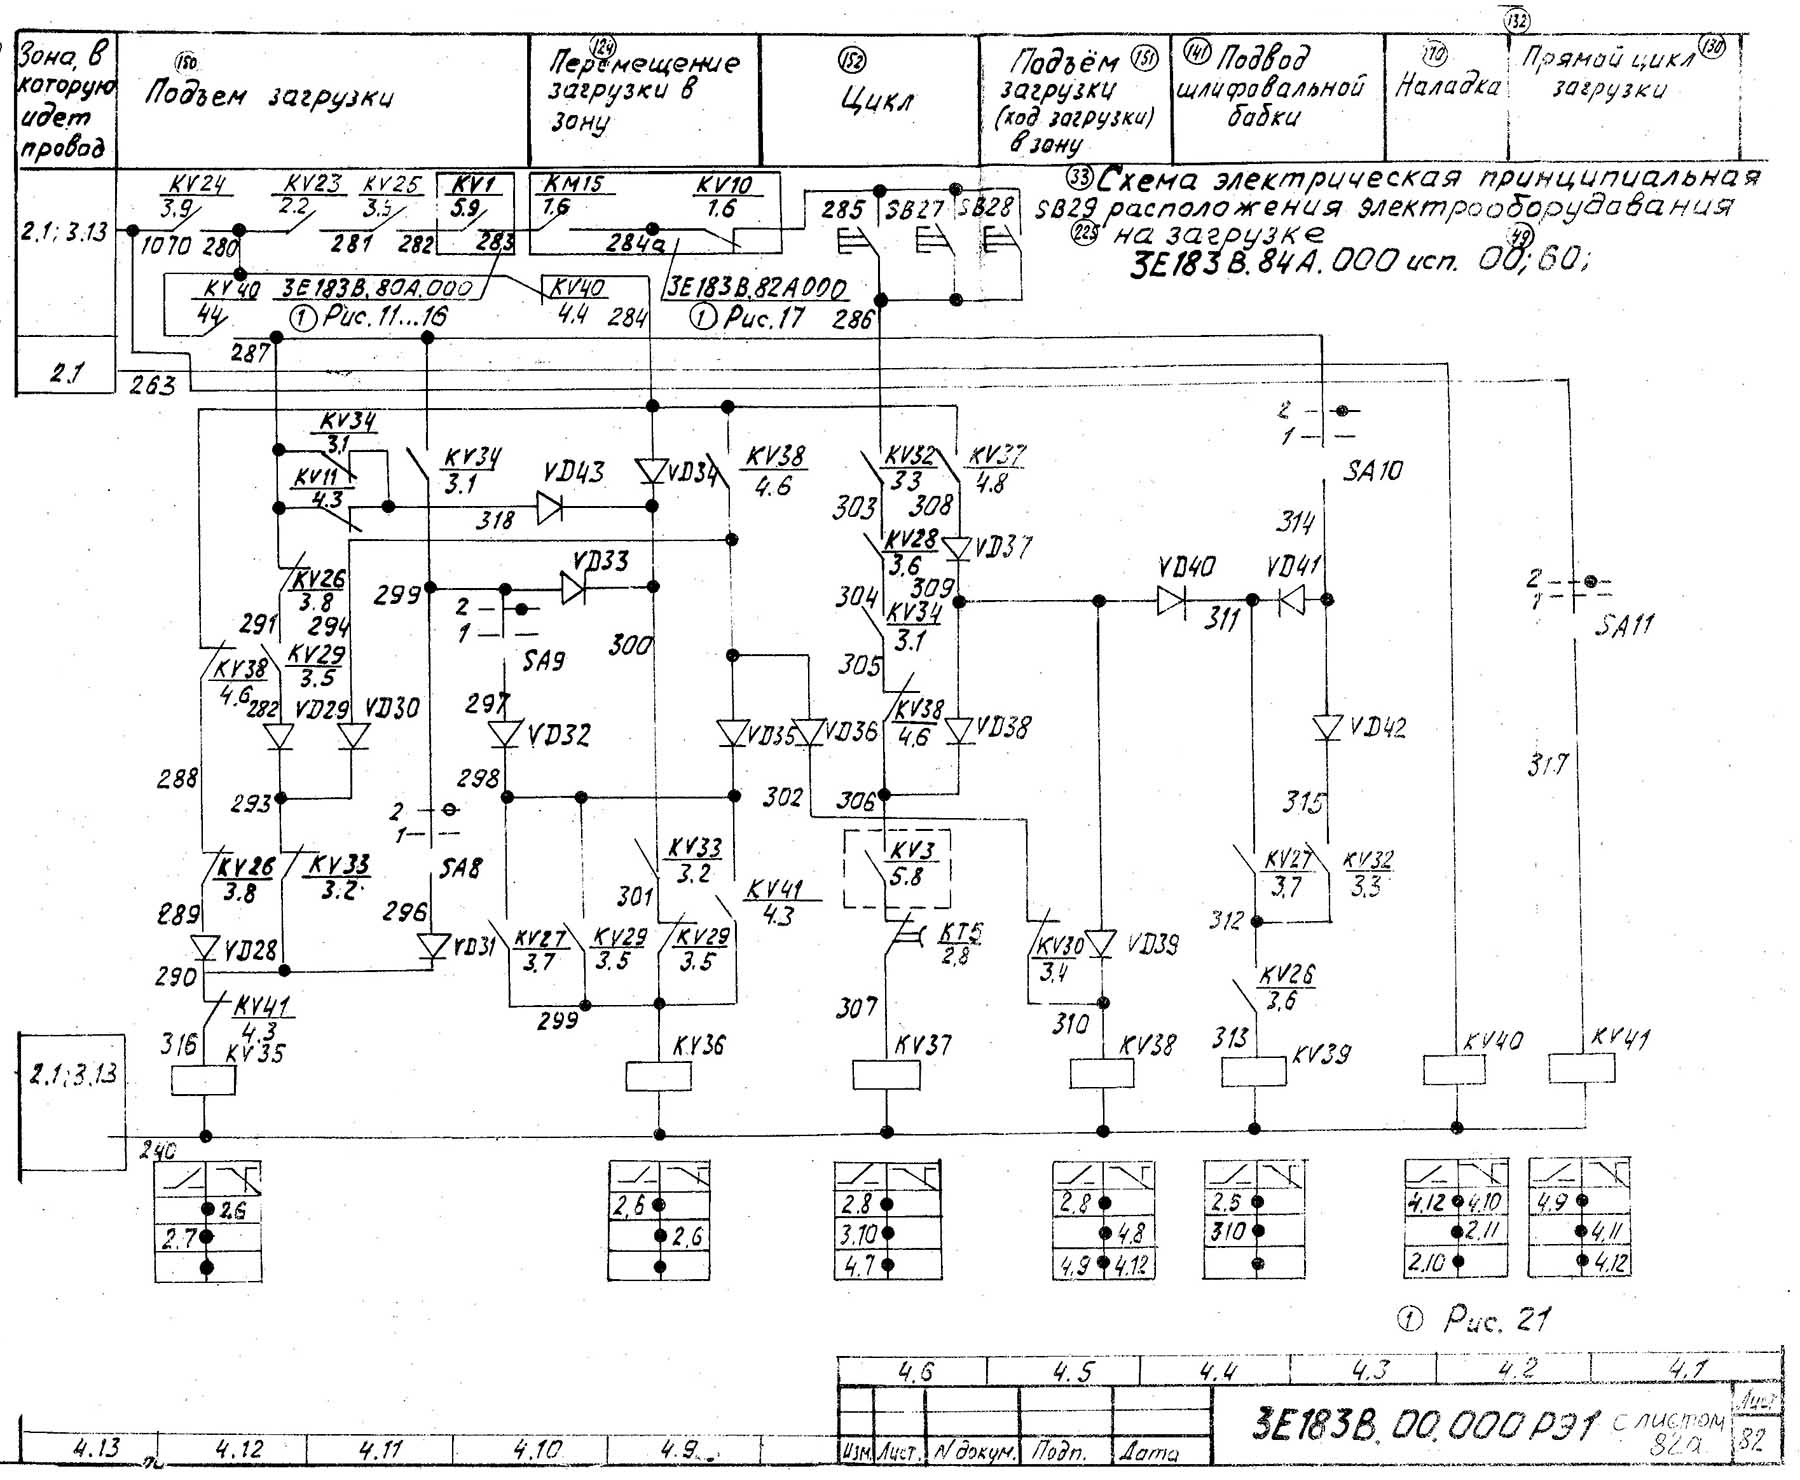 132
Зона, в
которую
идет
провод
150
Подъем загрузки
124
Перемещение
загрузки в
зону
152
Цикл
Подъём 151
загрузки
(ход загрузки)
в зону
141 Подвод
шлифовальной
бабки
170
Наладка
Прямой цикл 130
загрузки
33 Схема электрическая принципиальная
расположения электрооборудования
225 на загрузке 49
3Е183В.84А.000 исп. 00; 60;
2.1; 3.13
KV24
3.9
KV23
2.2
KV25
3.5
KV1
5.9
KM15
1.6
KV10
1.6
285
SB27
SB28
SB29
1070
280
281
282
283
284а
KV40
44
3Е183В.80А.000
KV40
4.4
3Е183В.82А000
1 Рис.11...16
284
1 Рис.17
286
287
2.1
263
KV34
3.1
KV11
4.3
KV34
3.1
VD43
VD34
KV38
4.6
KV32
33
KV37
4.8
2
1
SA10
318
303
308
314
KV26
3.8
299
VD33
KV28
3.6
VD37
309
VD40
VD41
311
2
1
SA11
291
294
2
1
SA9
300
304
KV34
3.1
305
KV38
4.6
KV29
3.5
282
VD29
VD30
297
VD32
VD35
VD36
KV38
4.6
VD38
VD42
317
288
293
298
302
306
315
2
1
SA8
KV26
3.8
KV33
3.2
KV33
3.2
KV3
5.8
KV27
3.7
KV32
3.3
289
296
301
KV41
4.3
312
VD28
VD31
KV27
3.7
KV29
3.5
KV29
3.5
KT5
2.8
KV30
3.4
VD39
290
KV26
3.6
KV41
4.3
299
307
310
313
316
KV35
KV36
KV37
KV38
KV39
KV40
KV41
2.1; 3.13
240
2.6
2.7
2.6
2.6
2.8
3.10
4.7
2.8
4.8
4.9 4.12
2.5
310
4.12 4.10
2.11
2.10
4.9
4.11
4.12
1 Рис. 21
4.6 4.5 4.4 4.3 4.2 4.1
4.13 4.12 4.11 4.10 4.9
Изм. Лист. N докум. Подп. Дата
3Е183В.00.000РЭ1 с листом
82а
Лист
82